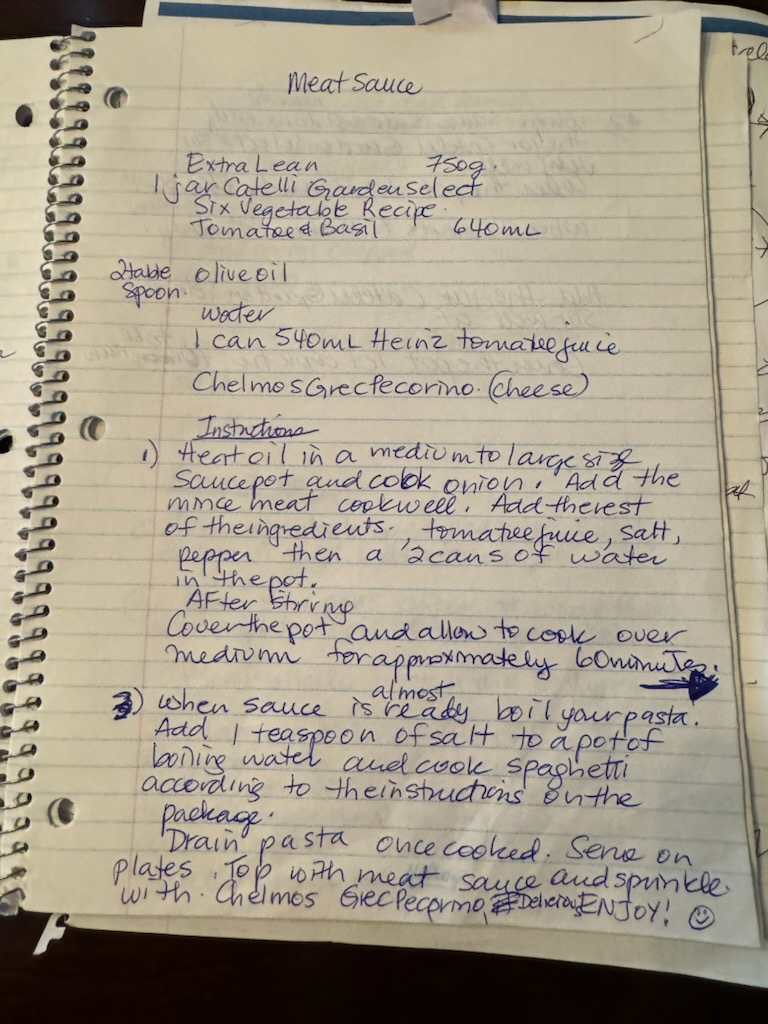 Meat Sauce
Extra Lean 750g.
1 jar Catelli Garden select
Six Vegetable Recipe.
Tomatoe & Basil 640mL
2 table spoon olive oil
water
1 can 540mL Heinz tomatoe juice
Chelmos Grec Pecorino. (cheese)
Instructions
1) Heat oil in a medium to large size
saucepot and cook onion. Add the
mince meat cook well. Add the rest
of the ingredients., tomatoe juice, salt,
pepper then a 2 cans of water
in the pot.
After stiring
Cover the pot and allow to cook over
medium for approximately 60 minutes.
3) When sauce is almost ready boil your pasta.
Add 1 teaspoon of salt to a pot of
boiling water and cook spaghetti
according to the instructions on the
package.
Drain pasta once cooked. Serve on
plates. Top with meat sauce and sprinkle
with. Chelmos Grec Pecorino, Delicious ENJOY!